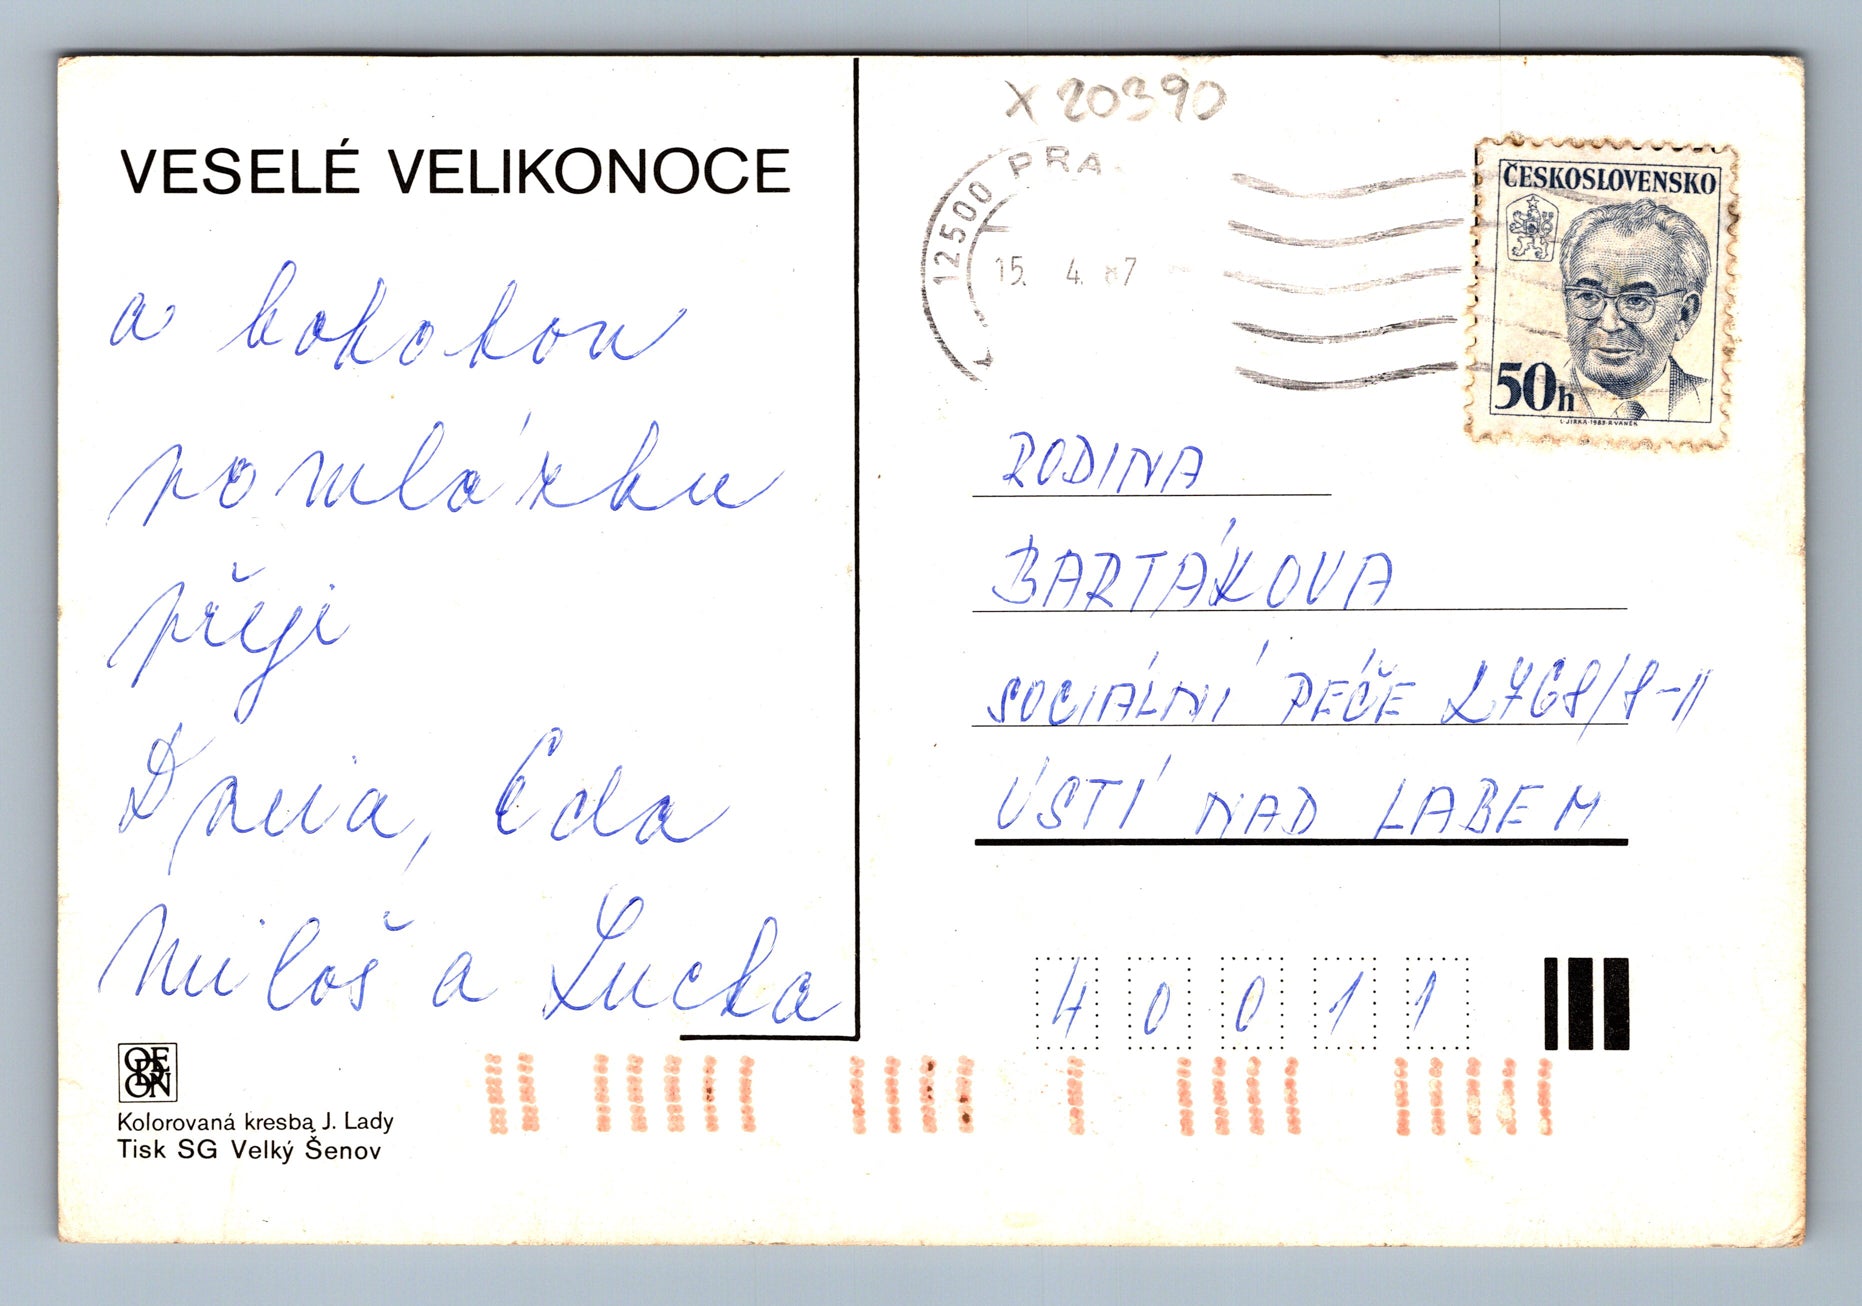 VESELÉ VELIKONOCE
a bohatou
pomlázku
přeji
Eda
Miloš a Lucka
ODEON
Kolorovaná kresba J. Lady
Tisk SG Velký Šenov
X 20390
12500 PRA
15. 4. 87
ČESKOSLOVENSKO
50h
L. JIRKA · 1983 · R. VANĚK
RODINA
BARTÁKOVA
SOCIÁLNÍ PÉČE
ÚSTÍ NAD LABEM
40011